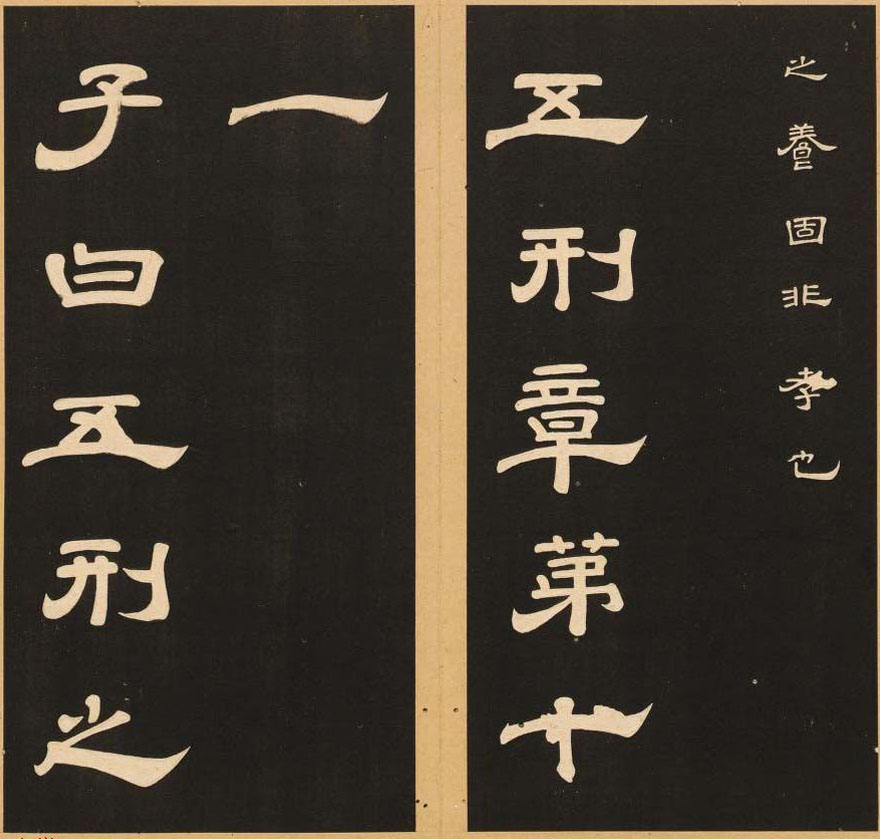 之養固非孝也
五刑章苐十
一
子曰五刑之